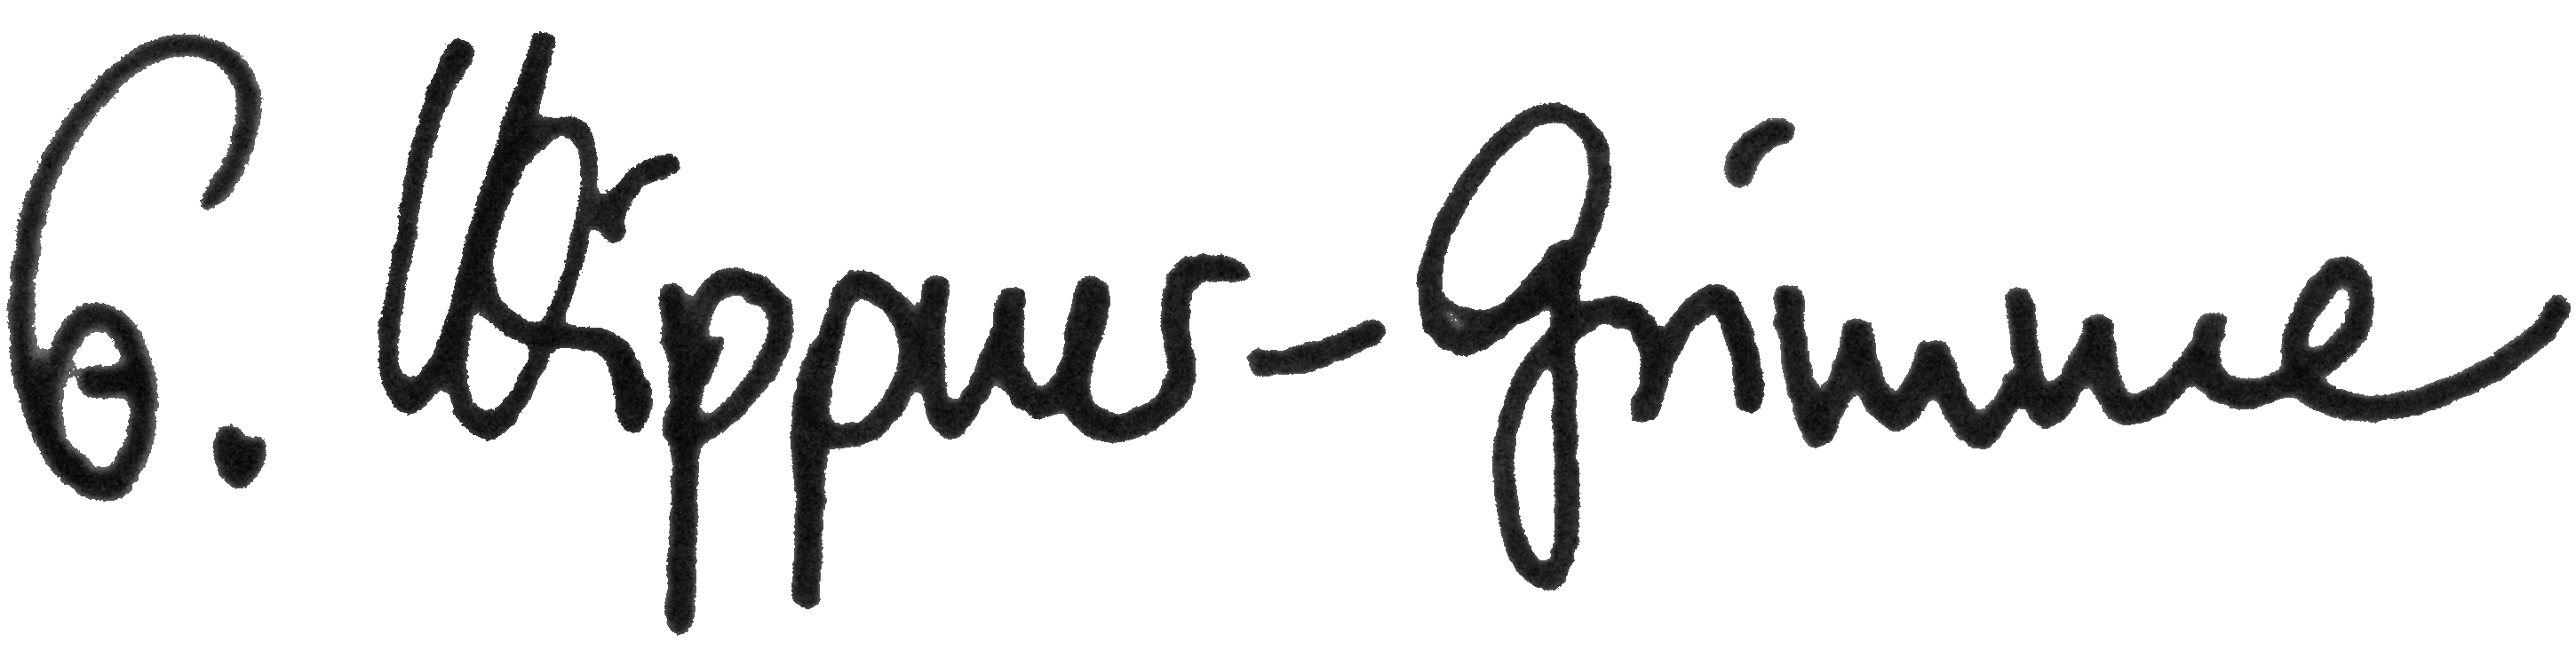 G. Wippner-Grimme